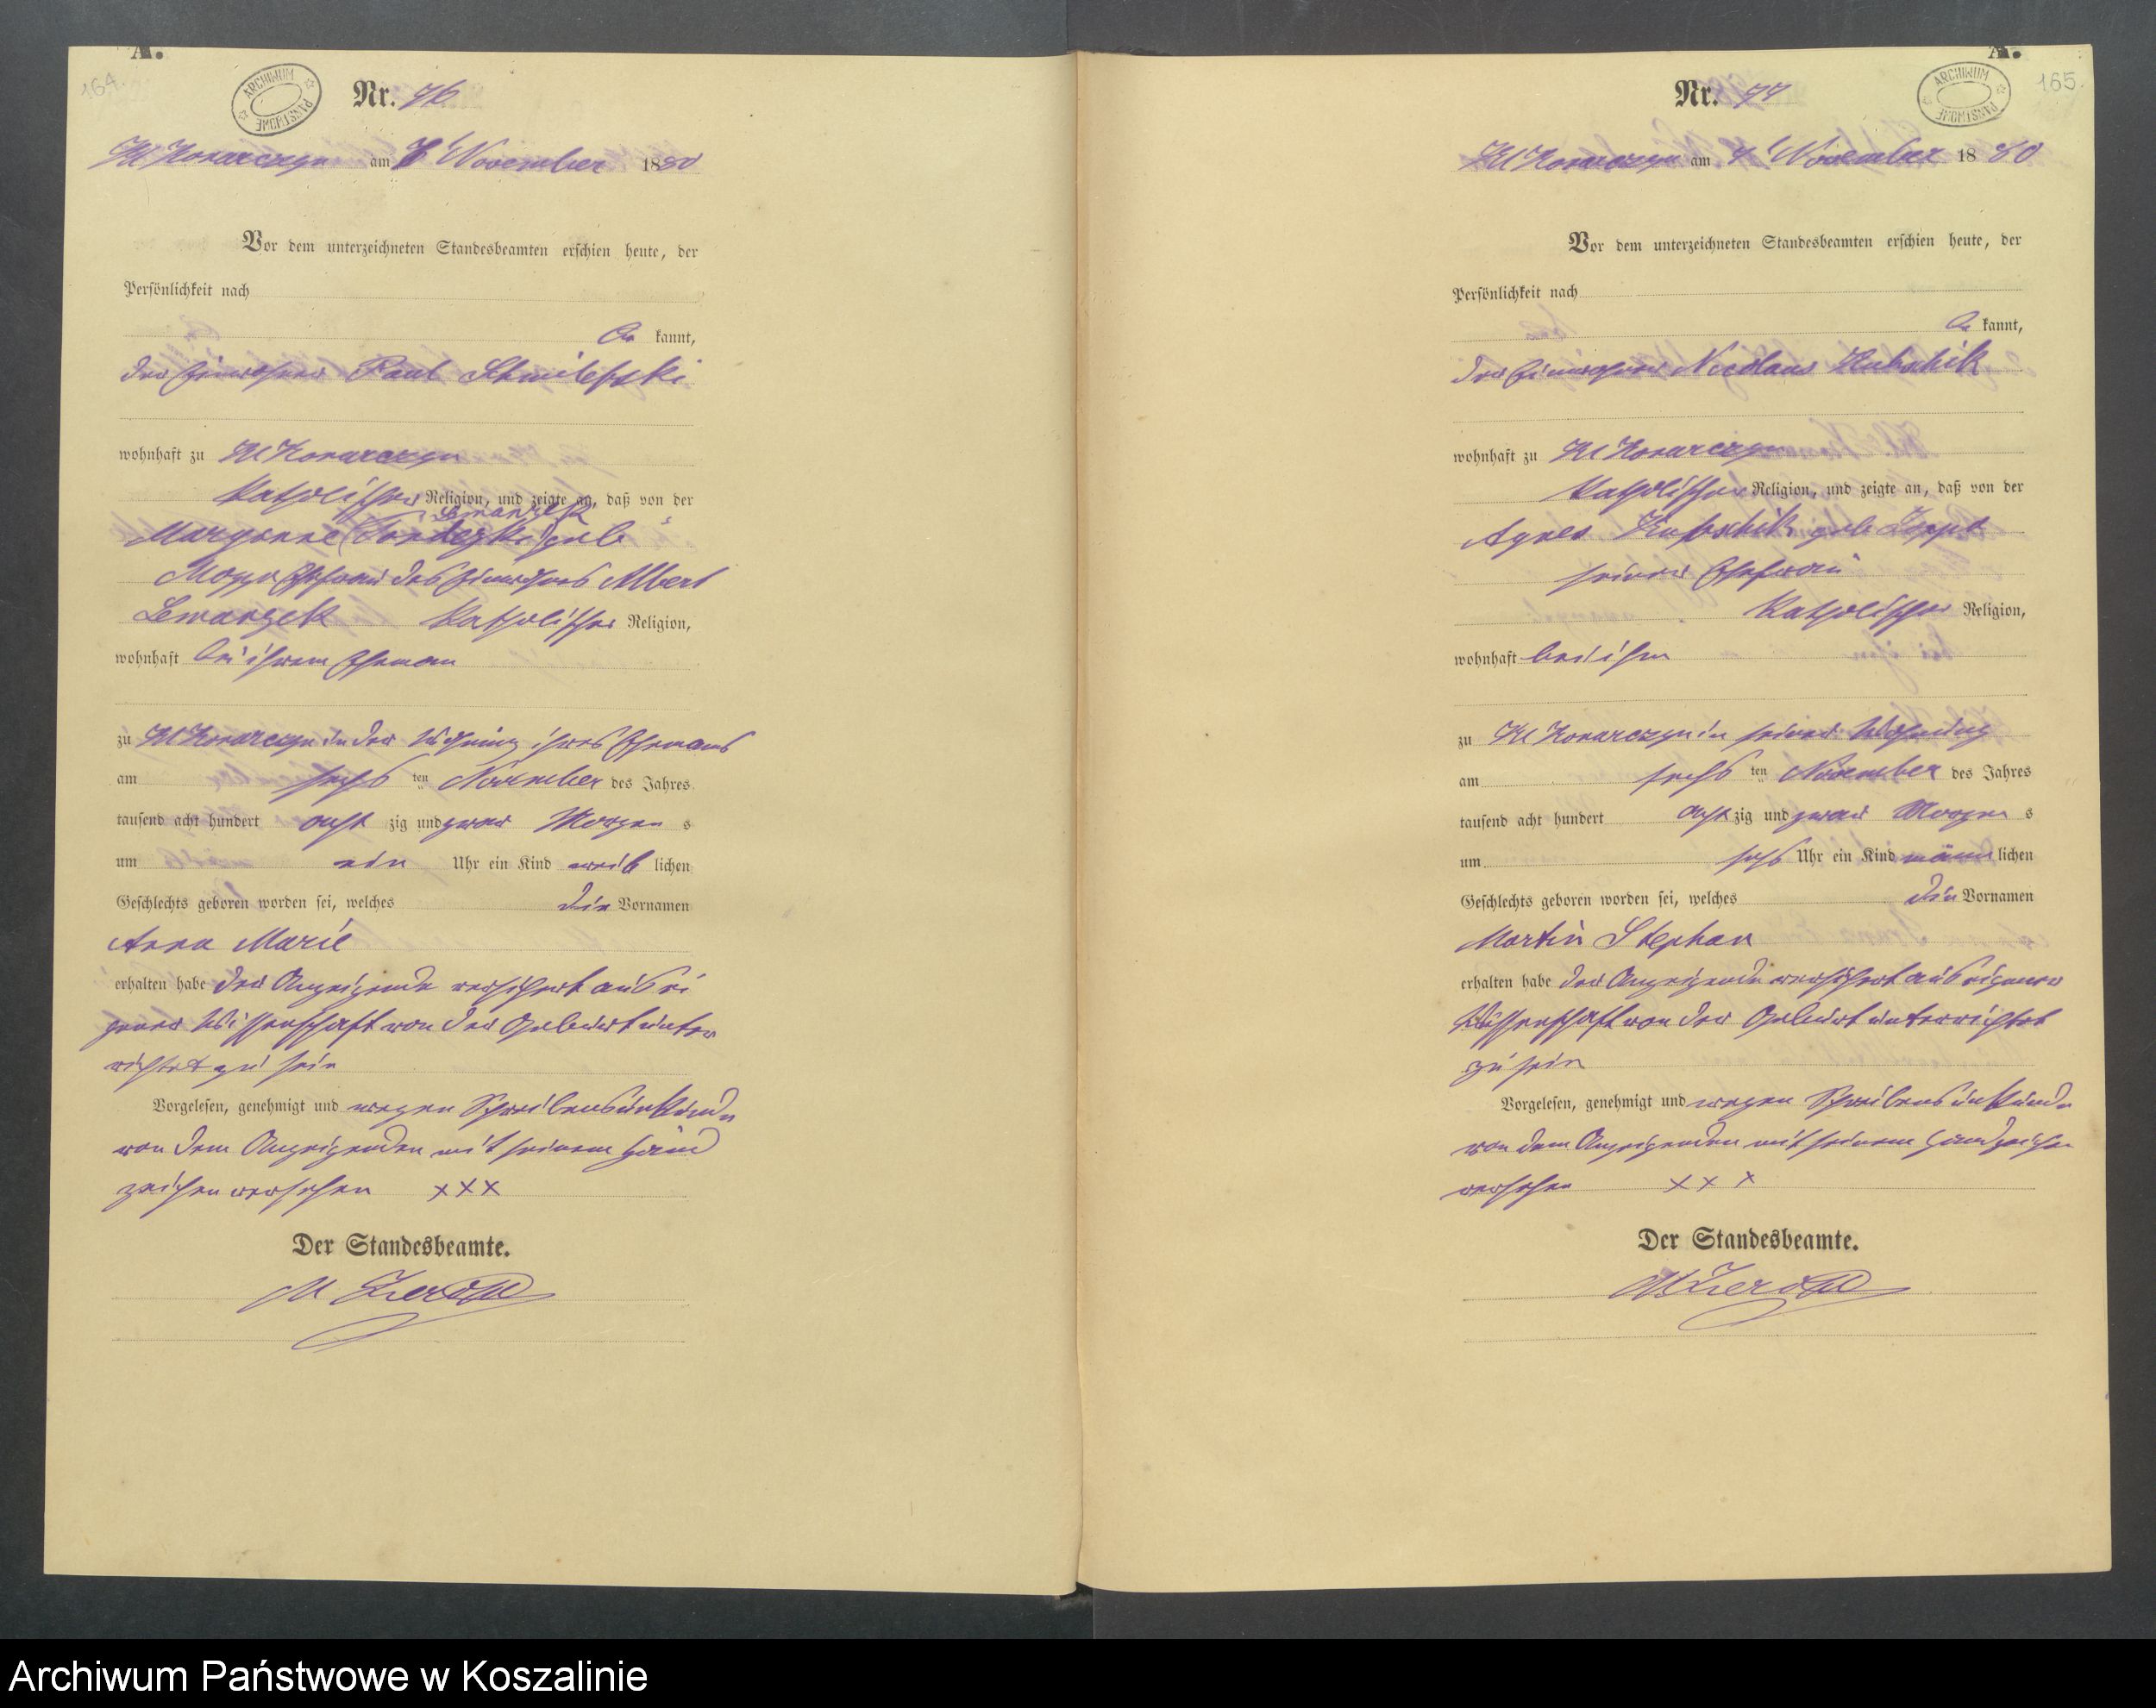 A.
164.
ARCHIWUM PAŃSTWOWE
Nr. 76
Kl Konarczyn am 7t November 1880
Vor dem unterzeichneten Standesbeamten erschien heute, der
Persönlichkeit nach
be kannt,
der Einwohner Paul
wohnhaft zu Kl Konarczyn
katholischer Religion, und zeigte an, daß von der
Lewanzek
Maryanne geb
Ehefrau des Einwohners Albert
Lewanzek katholischer Religion,
wohnhaft bei ihrem Eheman
zu Kl Konarczyn in der Wohnung ihres Ehemans
am sechs ten November des Jahres
tausend acht hundert acht zig und zwar Morgen s
um ein Uhr ein Kind weib lichen
Geschlechts geboren worden sei, welches die Vornamen
Anna Marie
erhalten habe der Anzeigende versichert aus ei
gener Wissenschaft von der Geburt unter
richtet zu sein
Vorgelesen, genehmigt und wegen Schreibensunkunde
von dem Anzeigenden mit seinem Hand
zeichen versehen XXX
Der Standesbeamte.
A.
165.
ARCHIWUM PAŃSTWOWE
Nr. 77
Kl Konarczyn am 7t November 1880
Vor dem unterzeichneten Standesbeamten erschien heute, der
Persönlichkeit nach
be kannt,
der Einwohner Nicolaus Kubschik
wohnhaft zu Kl Konarczyn
katholischer Religion, und zeigte an, daß von der
Agnes Kubschik geb
seiner Ehefrau
katholischer Religion,
wohnhaft bei ihm
zu Kl Konarczyn in seiner Wohnung
am sechs ten November des Jahres
tausend acht hundert acht zig und zwar Morgen s
um sechs Uhr ein Kind männ lichen
Geschlechts geboren worden sei, welches die Vornamen
Martin Stephan
erhalten habe der Anzeigende versichert aus eigener
Wissenschaft von der Geburt unterrichtet
zu sein
Vorgelesen, genehmigt und wegen Schreibensunkunde
von dem Anzeigenden mit seinem Handzeichen
versehen XXX
Der Standesbeamte.
Archiwum Państwowe w Koszalinie